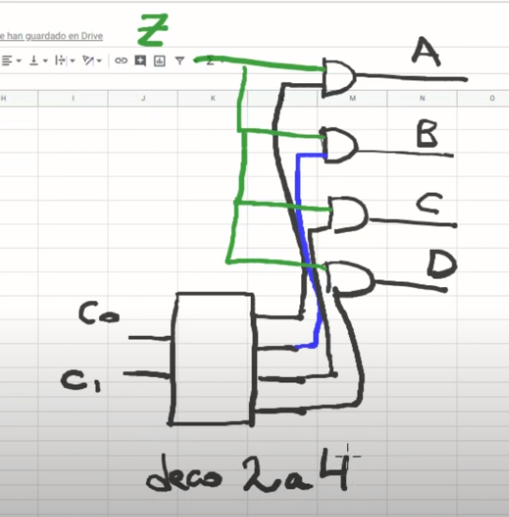 e han guardado en Drive
Z
A
H I J K M N O
B
C
D
C0
C1
deco 2 a 4